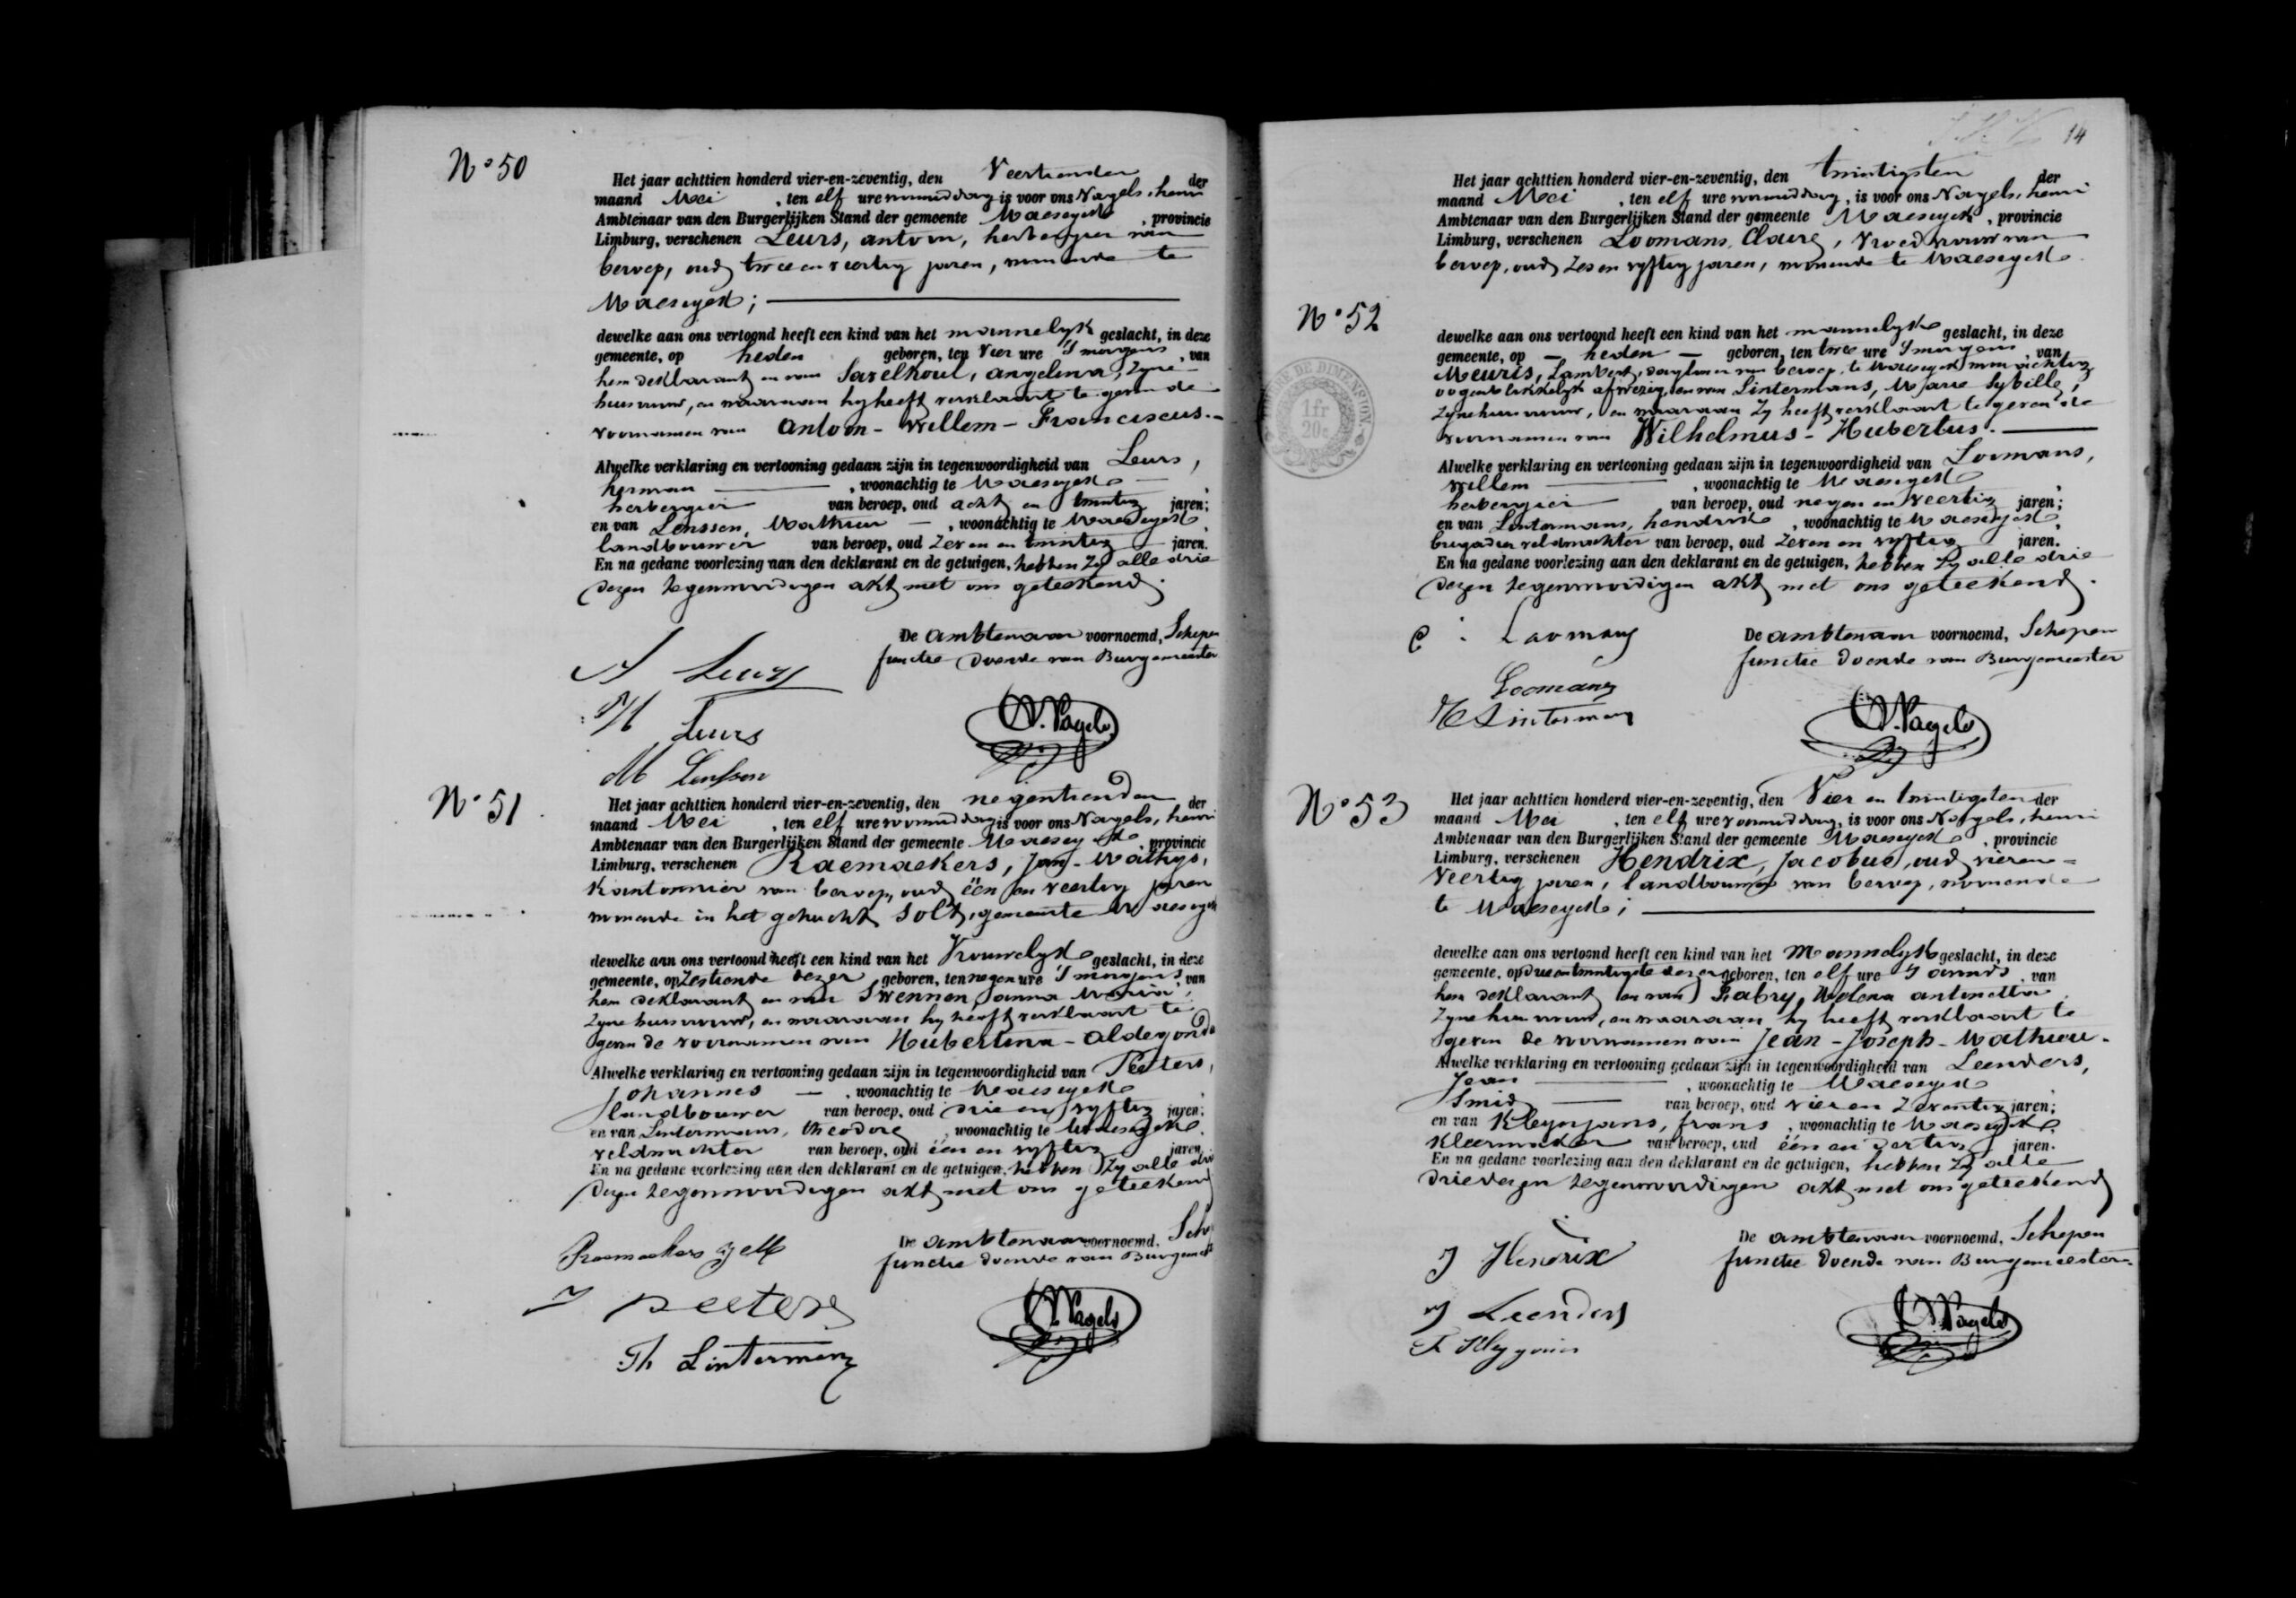 N° 50
Het jaar achttien honderd vier-en-zeventig, den Veertienden der
maand Mei, ten elf ure voormiddag is voor ons Nagels, henri
Ambtenaar van den Burgerlijken Stand der gemeente Maeseyck, provincie
Limburg, verschenen Leurs, antoon, herbergier van
beroep, oud twee en veertig jaren, wonende te
Maeseyck;
dewelke aan ons vertoond heeft een kind van het mannelyk geslacht, in deze
gemeente, op heden geboren, ten vier ure 's morgens, van
hem deklarant en van angelina, zyne
huisvrouw, en waaraan hy heeft verklaart te geven de
voornamen van Antoon - Willem - Franciscus.
Alwelke verklaring en vertooning gedaan zijn in tegenwoordigheid van Leurs,
herman, woonachtig te Maeseyck,
herbergier van beroep, oud acht en twintig jaren;
en van Lenssen, Mathieu, woonachtig te Maeseyck,
landbouwer van beroep, oud zeven en twintig jaren.
En na gedane voorlezing aan den deklarant en de getuigen, hebben zy alle drie
dezen tegenwoordigen akt met ons geteekend.
De ambtenaar voornoemd, Schepen
functie doende van Burgemeester
A Leurs
H Leurs
M Lenssen
N. Nagels
N° 51
Het jaar achttien honderd vier-en-zeventig, den negentienden der
maand Mei, ten elf ure voormiddag is voor ons Nagels, henri
Ambtenaar van den Burgerlijken Stand der gemeente Maeseyck, provincie
Limburg, verschenen Raemaekers, Jan - Mathys,
Kantonnier van beroep, oud één en veertig jaren
wonende in het gehucht Solt, gemeente Maeseyck
dewelke aan ons vertoond heeft een kind van het Vrouwelyk geslacht, in deze
gemeente, op zestiende dezer geboren, ten negen ure 's morgens, van
hem deklarant en van Swennen, anna Maria,
zyne huisvrouw, en waaraan hy heeft verklaart te
geven de voornamen van Hubertina - Aldegonda
Alwelke verklaring en vertooning gedaan zijn in tegenwoordigheid van Peeters,
Johannes, woonachtig te Maeseyck
landbouwer van beroep, oud drie en vyftig jaren;
en van Lintermans, theodore, woonachtig te Maeseyck,
veldwachter van beroep, oud één en vyftig jaren.
En na gedane voorlezing aan den deklarant en de getuigen, hebben zy alle drie
dezen tegenwoordigen akt met ons geteekend
De ambtenaar voornoemd, Sch
functie doende van Burgemeest
Raemaekers
J Peeters
Th Lintermans
N. Nagels
14
Het jaar achttien honderd vier-en-zeventig, den twintigsten der
maand Mei, ten elf ure voormiddag, is voor ons Nagels, henri
Ambtenaar van den Burgerlijken Stand der gemeente Maeseyck, provincie
Limburg, verschenen Loomans, Claire, Vroedvrouw van
beroep, oud zes en vyftig jaren, wonende te Maeseyck
N° 52
dewelke aan ons vertoond heeft een kind van het mannelyk geslacht, in deze
gemeente, op heden geboren, ten twee ure 's morgens, van
Meuris, Lambert, daglooner van beroep, te Maeseyck woonachtig
oogenblikkelyk afwezig, en van Lintermans, Marie Sybille,
zyne huisvrouw, en waaraan zy heeft verklaart te geven de
voornamen van Wilhelmus - Hubertus.
Alwelke verklaring en vertooning gedaan zijn in tegenwoordigheid van Loomans,
Willem, woonachtig te Maeseyck,
herbergier van beroep, oud negen en veertig jaren;
en van Lintermans, hendrik, woonachtig te Maeseyck,
brigadier veldwachter van beroep, oud zeven en vyftig jaren.
En na gedane voorlezing aan den deklarant en de getuigen, hebben zy alle drie
dezen tegenwoordigen akt met ons geteekend.
De ambtenaar voornoemd, Schepen
functie doende van Burgemeester
C. Loomans
Loomans
H Lintermans
N. Nagels
N° 53
Het jaar achttien honderd vier-en-zeventig, den Vier en twintigsten der
maand Mei, ten elf ure voormiddag, is voor ons Nagels, henri
Ambtenaar van den Burgerlijken Stand der gemeente Maeseyck, provincie
Limburg, verschenen Hendrix, Jacobus, oud vier en
Veertig jaren, landbouwer van beroep, wonende
te Maeseyck;
dewelke aan ons vertoond heeft een kind van het Mannelyk geslacht, in deze
gemeente, op drie en twintigste dezer geboren, ten elf ure 's avonds, van
hem deklarant en van Fabry, Helena antonetta
zyne huisvrouw, en waaraan hy heeft verklaart te
geven de voornamen van Jean - Joseph - Mathieu.
Alwelke verklaring en vertooning gedaan zijn in tegenwoordigheid van Leenders,
Jean, woonachtig te Maeseyck
Smid van beroep, oud vier en zeventig jaren;
en van Kleynjans, frans, woonachtig te Maeseyck,
Kleermaker van beroep, oud één en dertig jaren.
En na gedane voorlezing aan den deklarant en de getuigen, hebben zy alle
drie dezen tegenwoordigen akt met ons geteekend
De ambtenaar voornoemd, Schepen
functie doende van Burgemeester
J Hendrix
J Leenders
N. Nagels